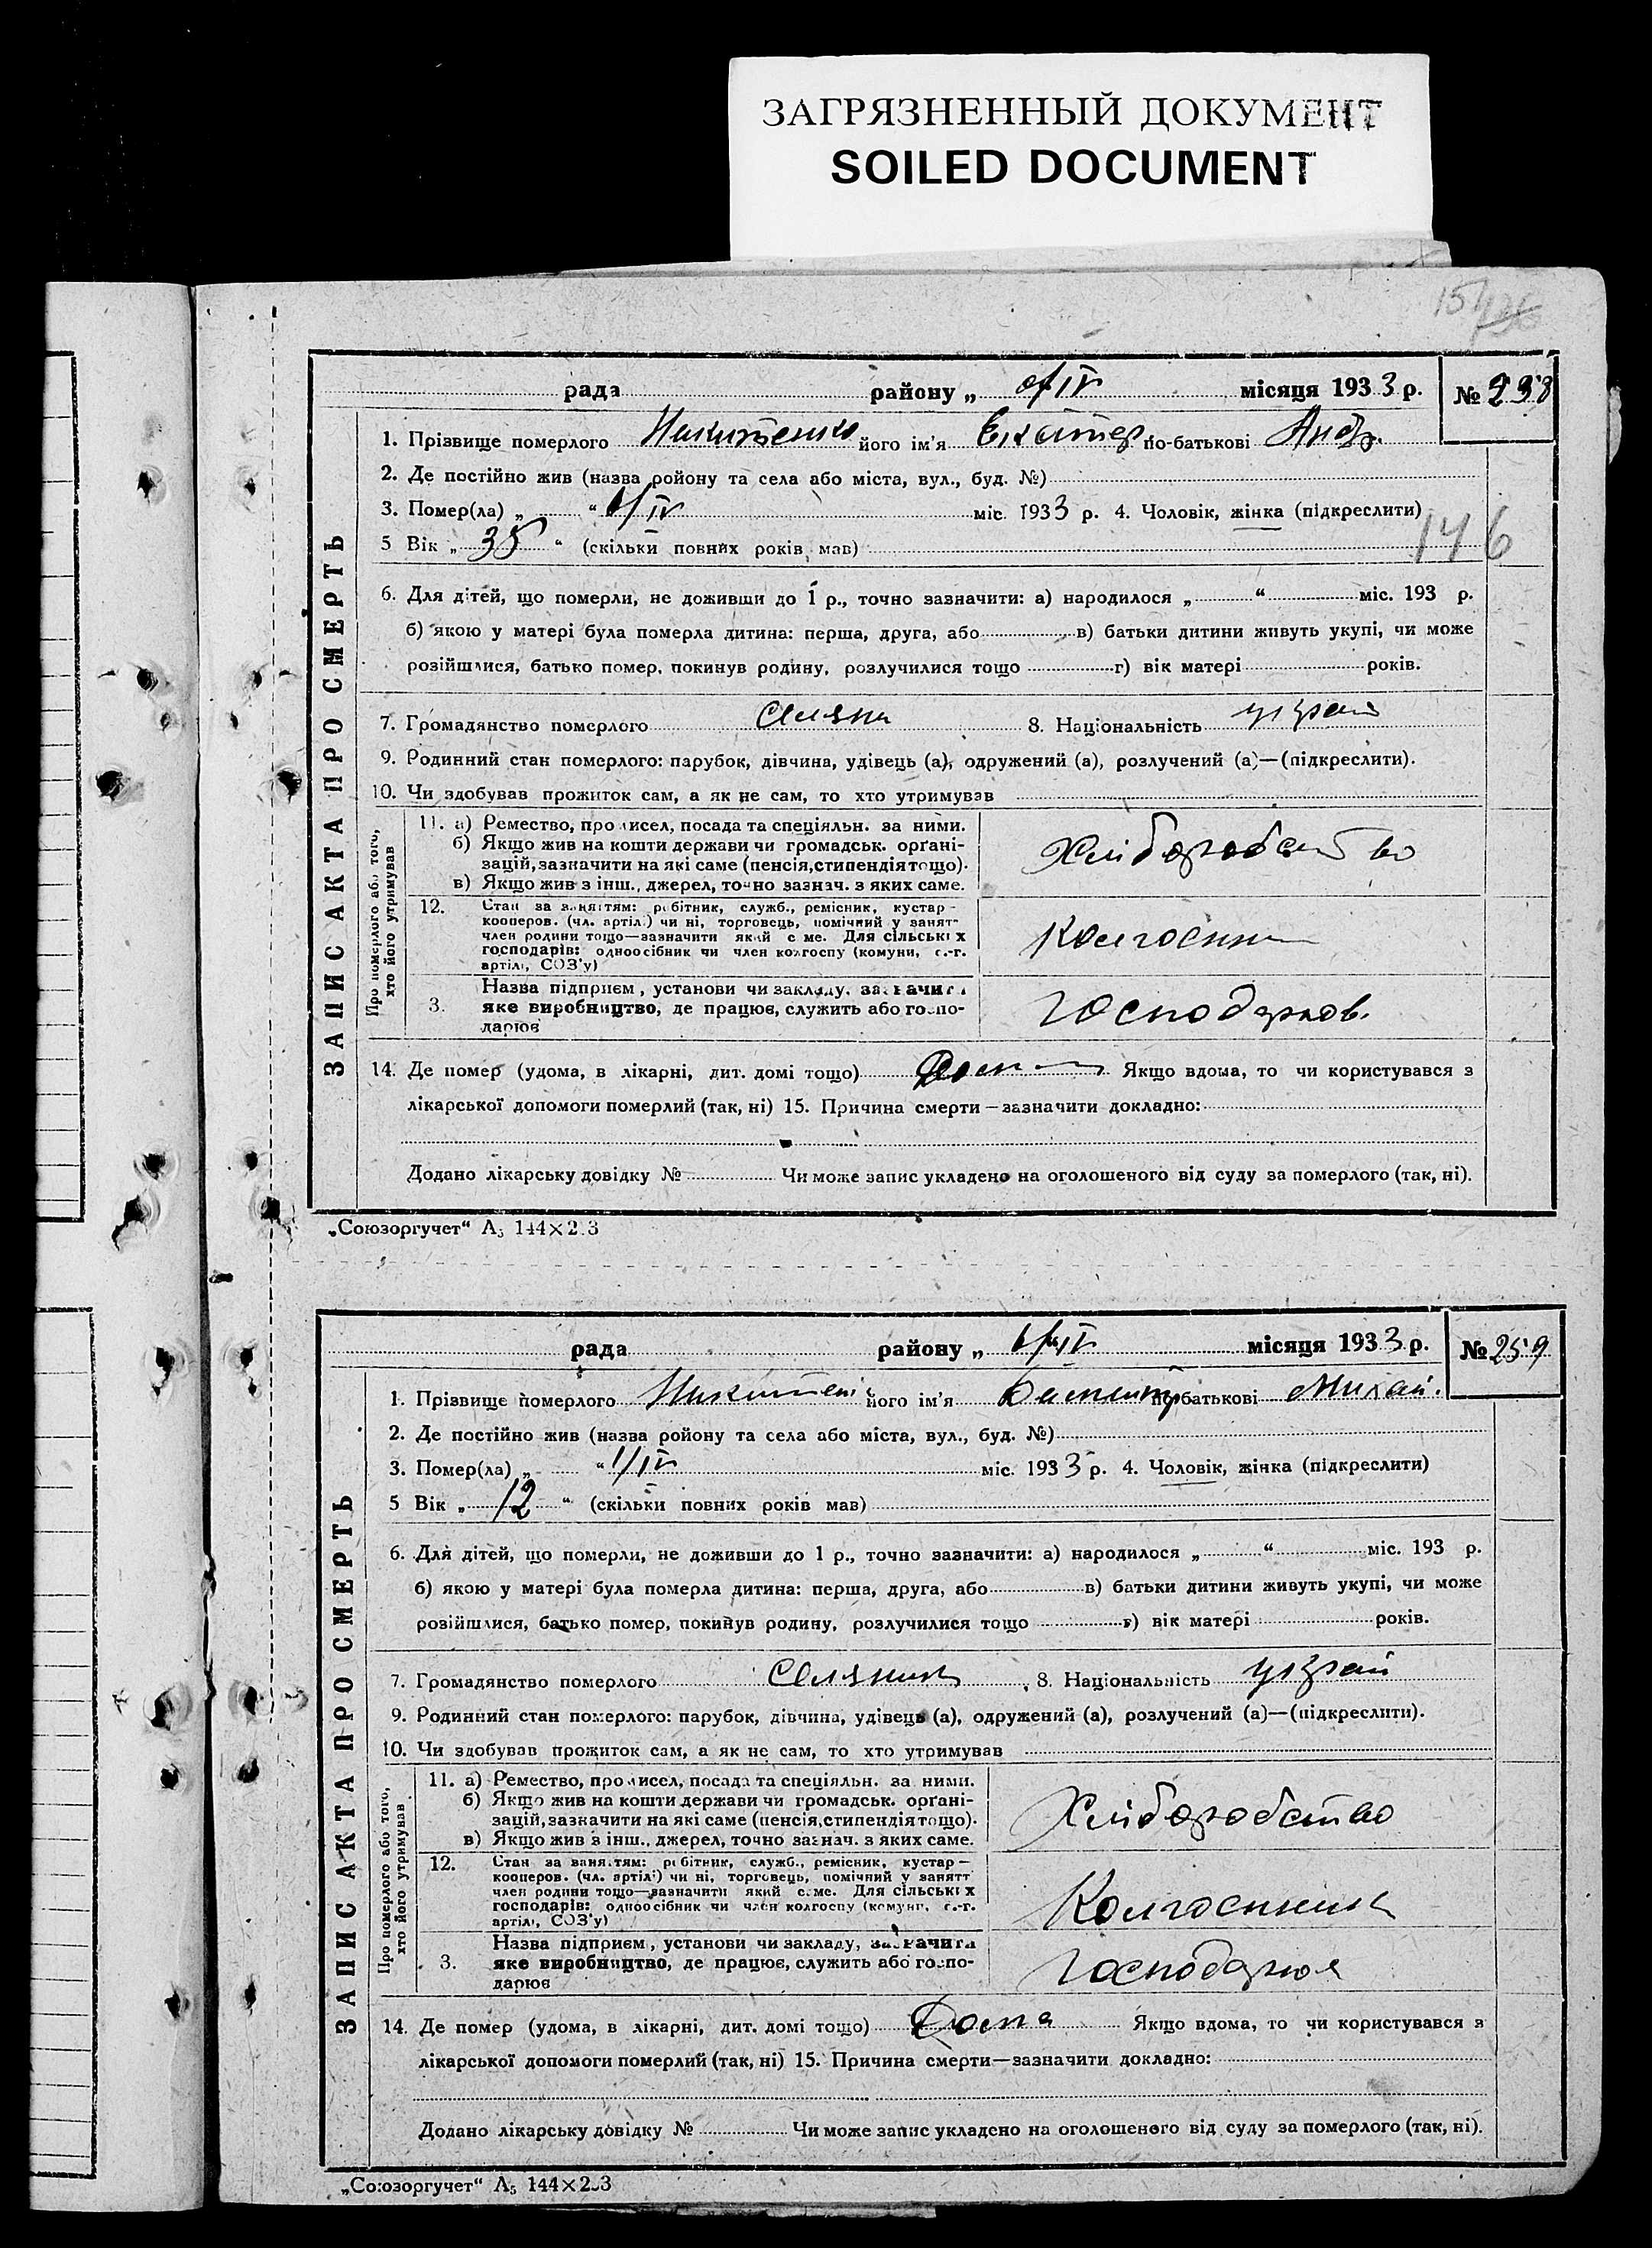 ЗАГРЯЗНЕННЫЙ ДОКУМЕНТ
SOILED DOCUMENT
ЗАПИС АКТА ПРО СМЕРТЬ
рада району „ місяця 1933 р. №
1. Прізвище померлого Никитенко його ім'я Екатер. по-батькові Андр.
2. Де постійно жив (назва ройону та села або міста, вул., буд. №)
3. Помер(ла) „ “ /IV міс. 1933 р. 4. Чоловік, жінка (підкреслити)
146
5 Вік „ 35 “ (скільки повних років мав)
6. Для дітей, що померли, не доживши до 1 р., точно зазначити: а) народилося „ “ міс. 193 р.
б) якою у матері була померла дитина: перша, друга, або в) батьки дитини живуть укупі, чи може
розійшлися, батько помер, покинув родину, розлучилися тощо г) вік матері років.
7. Громадянство померлого 8. Національність украі
9. Родинний стан померлого: парубок, дівчина, удівець (а), одружений (а), розлучений (а)—(підкреслити).
10. Чи здобував прожиток сам, а як не сам, то хто утримував
Про померлого або того, хто його утримував
11. а) Ремество, промисел, посада та спеціяльн. за ними.
б) Якщо жив на кошти держави чи громадськ. орґані-
зацій, зазначити на які саме (пенсія, стипендія тощо).
в) Якщо жив з інш., джерел, точно зазнач. з яких саме.
Хліборобство
12. Стан за заняттям: робітник, служб., ремісник, кустар—
кооперов. (чл. артілі) чи ні, торговець, помічний у занят-
член родини тощо—зазначити який саме. Для сільських
господарів: одноосібник чи член колгоспу (комуни, с.-г.
артілі, СОЗ'у)
3. Назва підприєм, установи чи закладу, зазначити
яке виробництво, де працює, служить або госпо-
дарює
Господарюв.
14. Де помер (удома, в лікарні, дит. домі тощо) Дома Якщо вдома, то чи користувався з
лікарської допомоги померлий (так, ні) 15. Причина смерти—зазначити докладно:
Додано лікарську довідку № Чи може запис укладено на оголошеного від суду за померлого (так, ні).
„Союзоргучет“ А₅ 144×2.3
ЗАПИС АКТА ПРО СМЕРТЬ
рада району „ 1/IV місяця 1933 р. № 259
1. Прізвище померлого його ім'я по-батькові Михай.
2. Де постійно жив (назва ройону та села або міста, вул., буд. №)
3. Помер(ла) „ “ 1/IV міс. 1933 р. 4. Чоловік, жінка (підкреслити)
5 Вік „ 12 “ (скільки повних років мав)
6. Для дітей, що померли, не доживши до 1 р., точно зазначити: а) народилося „ “ міс. 193 р.
б) якою у матері була померла дитина: перша, друга, або в) батьки дитини живуть укупі, чи може
розійшлися, батько помер, покинув родину, розлучилися тощо г) вік матері років.
7. Громадянство померлого Селянин 8. Національність украі
9. Родинний стан померлого: парубок, дівчина, удівець (а), одружений (а), розлучений (а)—(підкреслити).
10. Чи здобував прожиток сам, а як не сам, то хто утримував
Про померлого або того, хто його утримував
11. а) Ремество, промисел, посада та спеціяльн. за ними.
б) Якщо жив на кошти держави чи громадськ. орґані-
зацій, зазначити на які саме (пенсія, стипендія тощо).
в) Якщо жив з інш., джерел, точно зазнач. з яких саме.
Хліборобство
12. Стан за заняттям: робітник, служб., ремісник, кустар—
кооперов. (чл. артілі) чи ні, торговець, помічний у занятт
член родини тощо—зазначити який саме. Для сільських
господарів: одноосібник чи член колгоспу (комуни, с.-г.
артілі, СОЗ'у)
Колгоспник
3. Назва підприєм, установи чи закладу, зазначити
яке виробництво, де працює, служить або госпо-
дарює
Господарює
14. Де помер (удома, в лікарні, дит. домі тощо) Дома Якщо вдома, то чи користувався з
лікарської допомоги померлий (так, ні) 15. Причина смерти—зазначити докладно:
Додано лікарську довідку № Чи може запис укладено на оголошеного від суду за померлого (так, ні).
„Союзоргучет“ А₅ 144×2.3